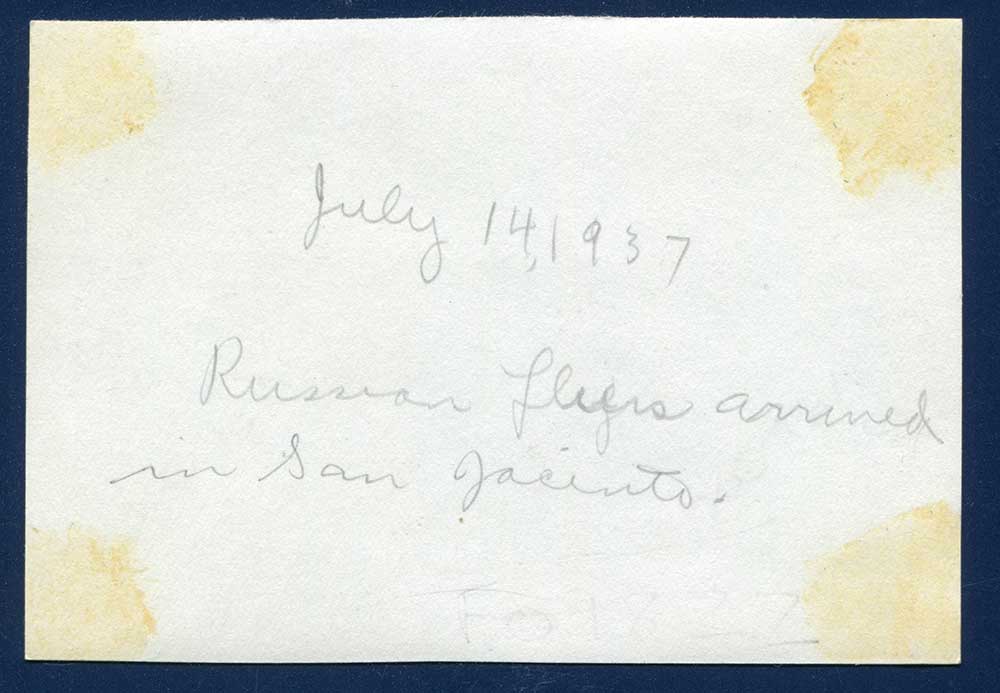 July 14, 1937
Russian fliers arrived
in San Jacinto.